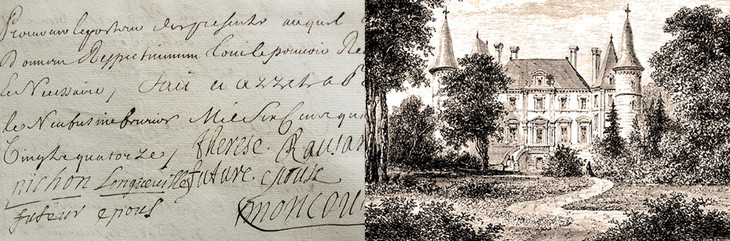 Procureur le porteur des presentes auquel
Donnent Respectivement tout le pouvoir Re
le Necessaire, Fait
le fevrier Mil Six Cens qua
Vingts quatorze, therese Rausan
pichon Longueville future epouse
futeur epous moncou